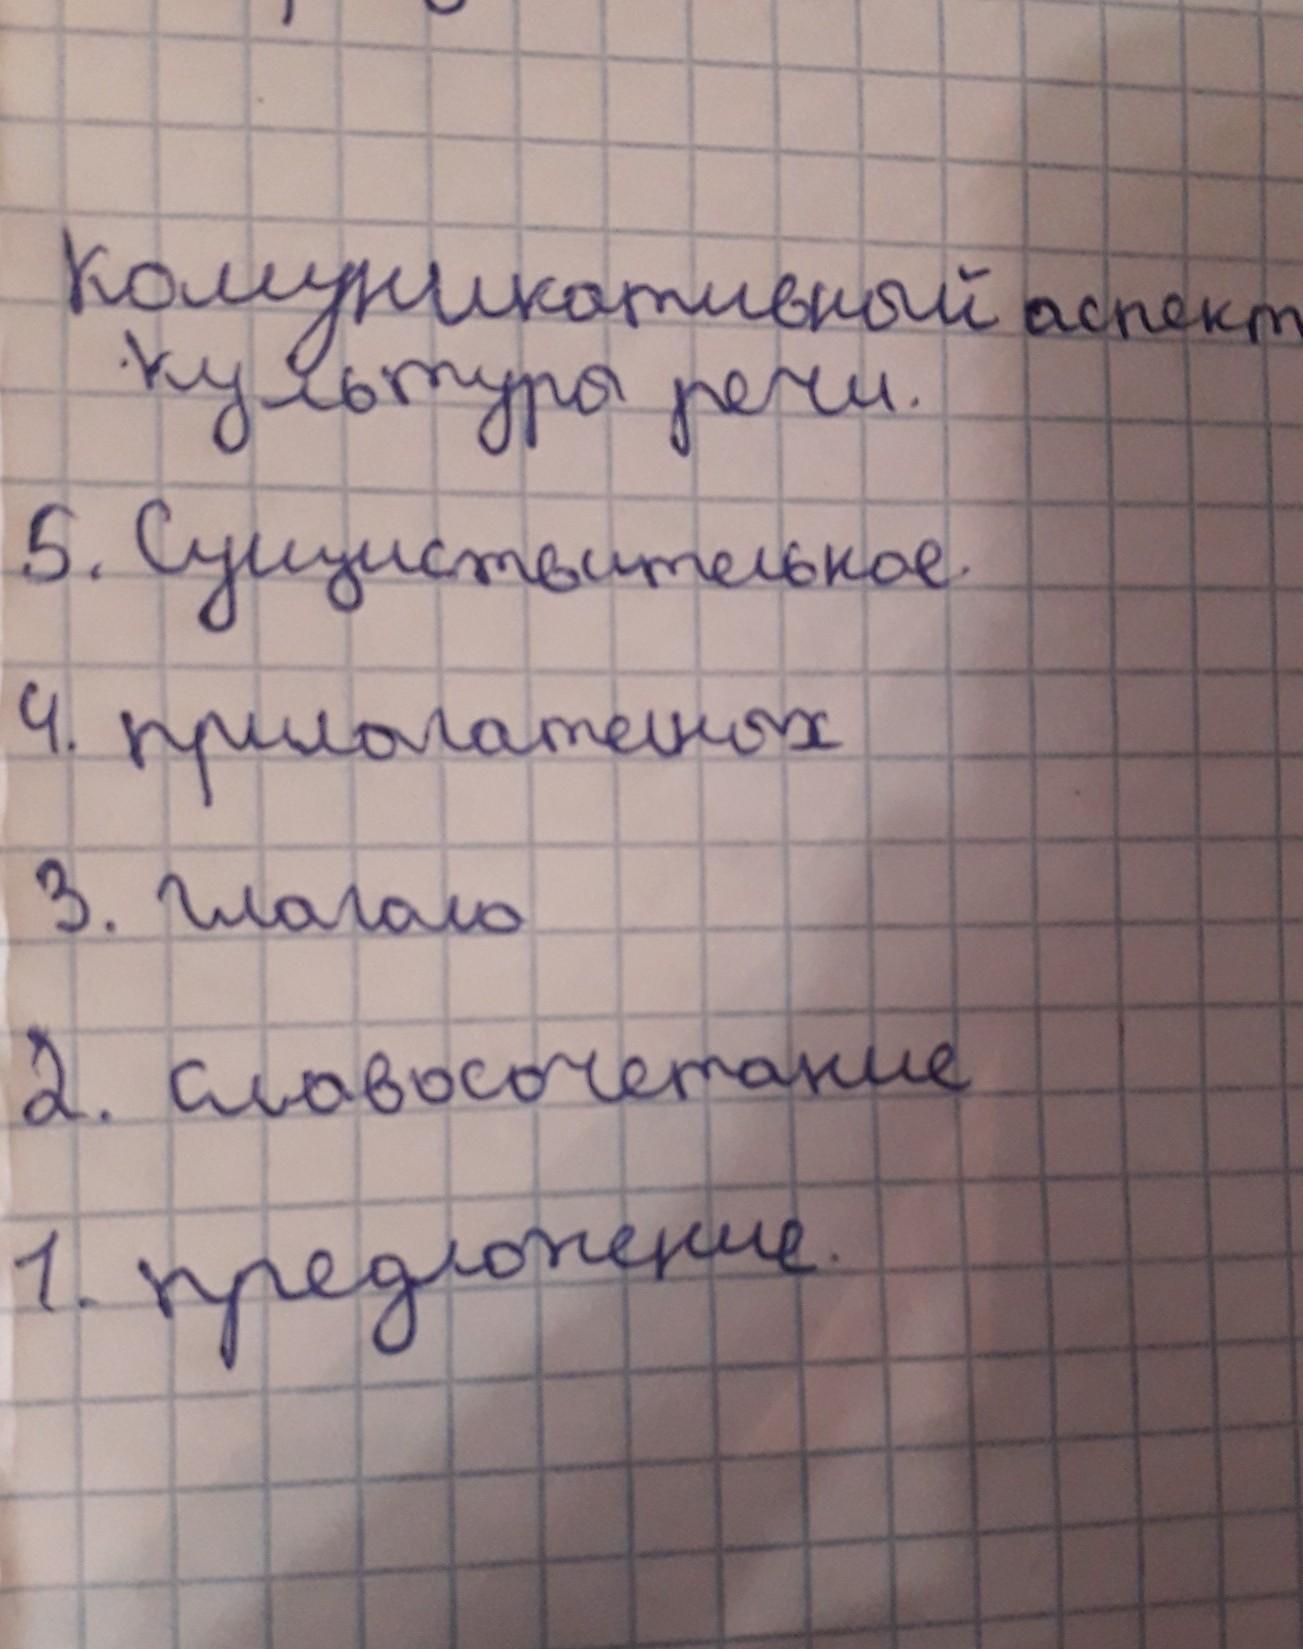 Комуникативный аспект
культура речи.
5. Сущуиствительное.
4. прилагательных
3. глагало
2. славосочетание
1. предложение.